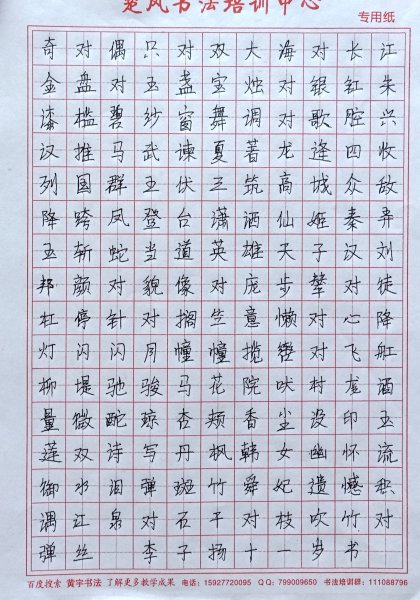 楚风书法培训中心
专用纸
奇对偶只对双大海对长江
金盘对玉盏宝烛对银釭朱
漆槛碧纱窗舞调对歌腔兴
汉推马武谏夏著龙逄四收
列国群王伏三筑高城众敌
降跨凤登台潇洒仙姬秦弄
玉斩蛇当道英雄天子汉刘
邦颜对貌像对庞步辇对徒
杠停针对搁竺意懒对心降
灯闪闪月幢幢揽辔对飞舡
柳堤驰骏马花院吠村尨酒
量微酡琼杏颊香尘没印玉
莲双诗写丹枫韩女幽怀流
御水泪弹斑竹舜妃遗憾积
遇江泉对石干对枝吹竹对
弹丝 李子扬十一岁书
百度搜索 黄宇书法 了解更多教学成果 电话：15927720095 QQ：799009650 书法培训群：111088796